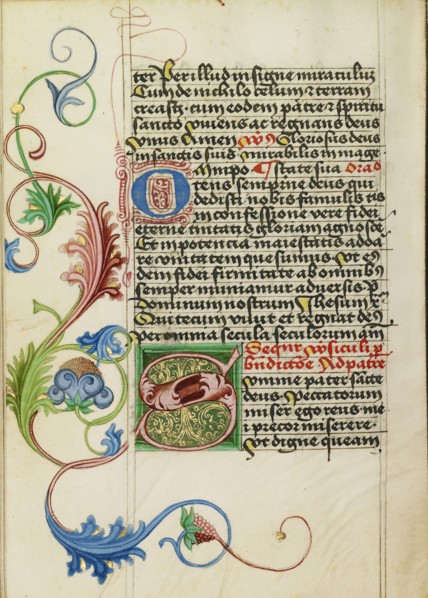 ter Per illud insigne miraculum
Cum de nichilo celum et terram
creasti. cum eodem patre et spiritu
sancto viuens ac regnans deus
vnus Amen Gloriosus deus
in sanctis suis Mirabilis in mage
state sua
Omnipo
tens sempiterne deus qui
dedisti nobis famulis tuis
in confessione vere fidei
eterne trinitatis gloriam agnosce
Et in potencia maiestatis adora
re vnitatem quesumus. vt eius
dem fidei firmitate ab omnibus
semper muniamur aduersis P
Dominum nostrum Jhesum
Qui tecum viuit et regnat deus
Per omnia secula seculorum amen
Ad patrem
Summe pater sancte
deus. Peccatorum
miser ego reus me
precor miserere.
Vt digne queam